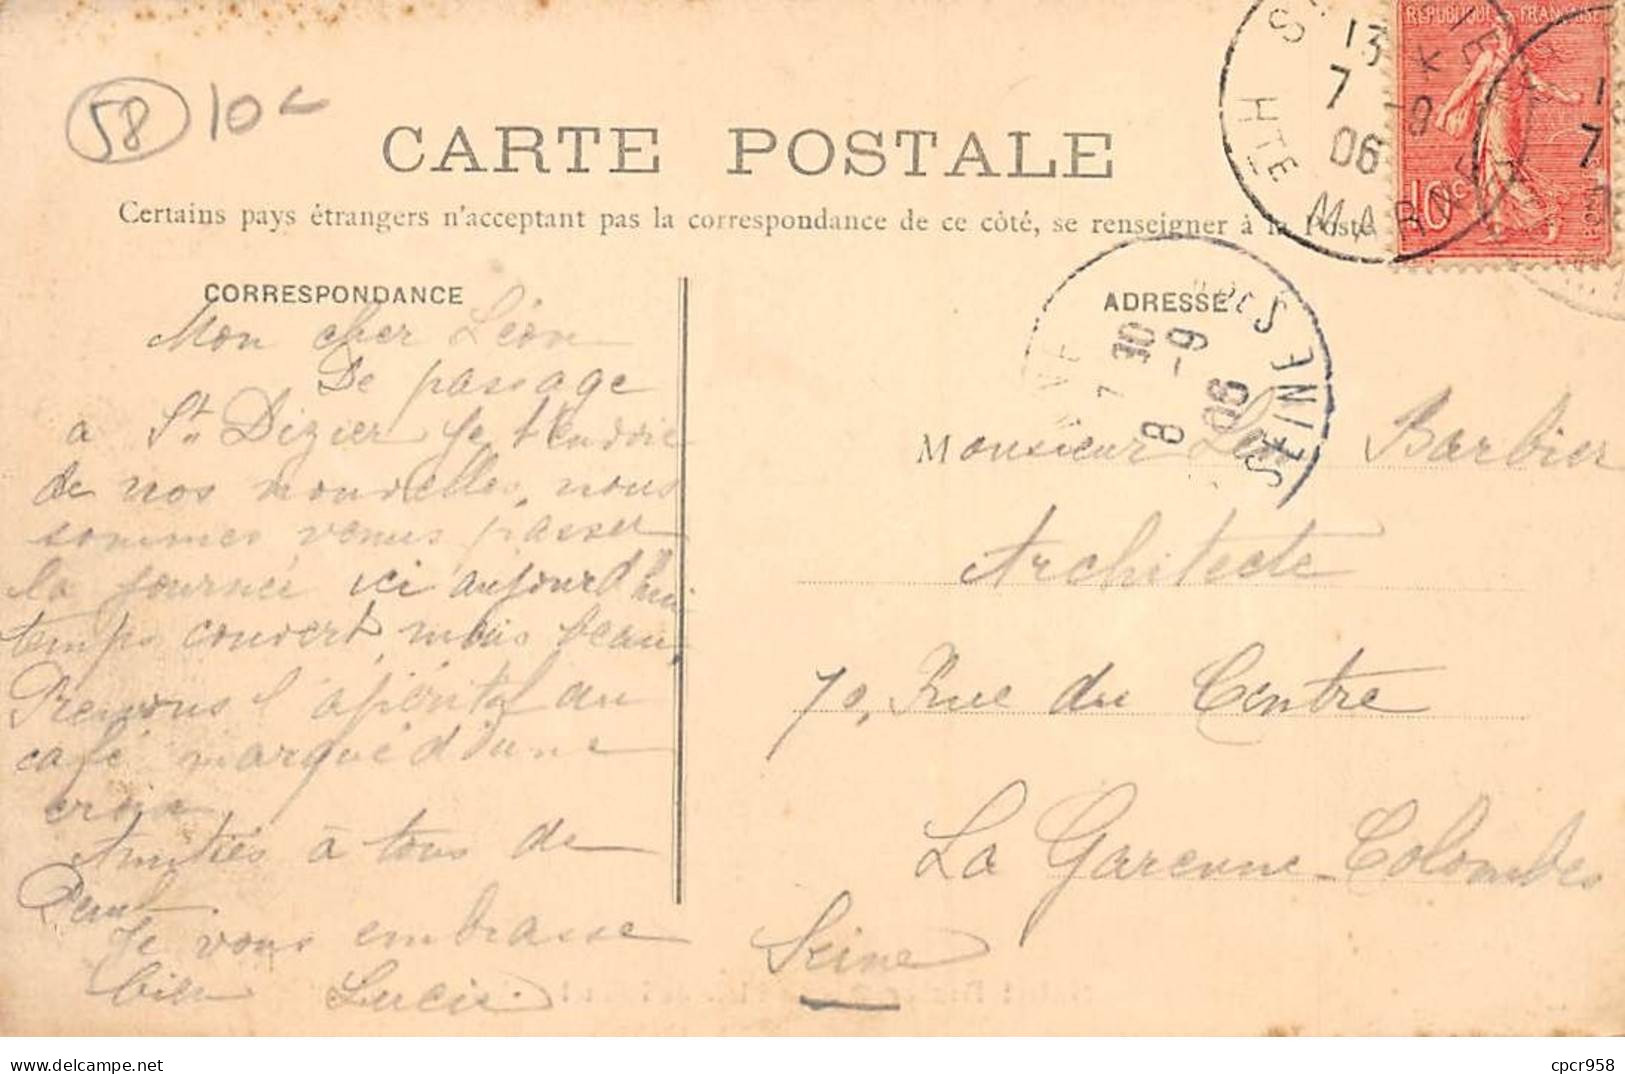 58 10c
CARTE POSTALE
Certains pays étrangers n'acceptant pas la correspondance de ce côté, se renseigner à la Poste
REPUBLIQUE FRANÇAISE
10c
13
7 -9
06
HTE MARNE
CORRESPONDANCE
ADRESSE
7 30
8 -9
06
SEINE
Mon cher Léon
De passage
à St Dizier je t'envoie
de nos nouvelles, nous
sommes venus passer
la journée ici aujourd'hui
temps couvert, mais beau,
Prenons l'apéritif au
café marqué d'une
croix
Amitiés à tous de
Je vous embrasse
bien Lucie
Monsieur Léon Barbier
Architecte
70, Rue du Centre
La Garenne-Colombes
Seine
cpcr958